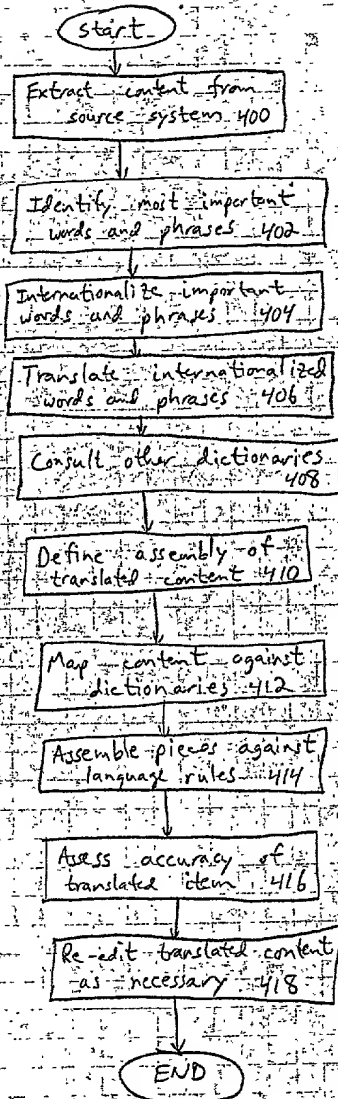 start
Extract content from
source system 400
Identify most important
words and phrases 402
Internationalize important
words and phrases 404
Translate internationalized
words and phrases 406
Consult other dictionaries
408
Define assembly of
translated content 410
Map content against
dictionaries 412
Assemble pieces against
language rules 414
Assess accuracy of
translated item 416
Re-edit translated content
as necessary 418
END